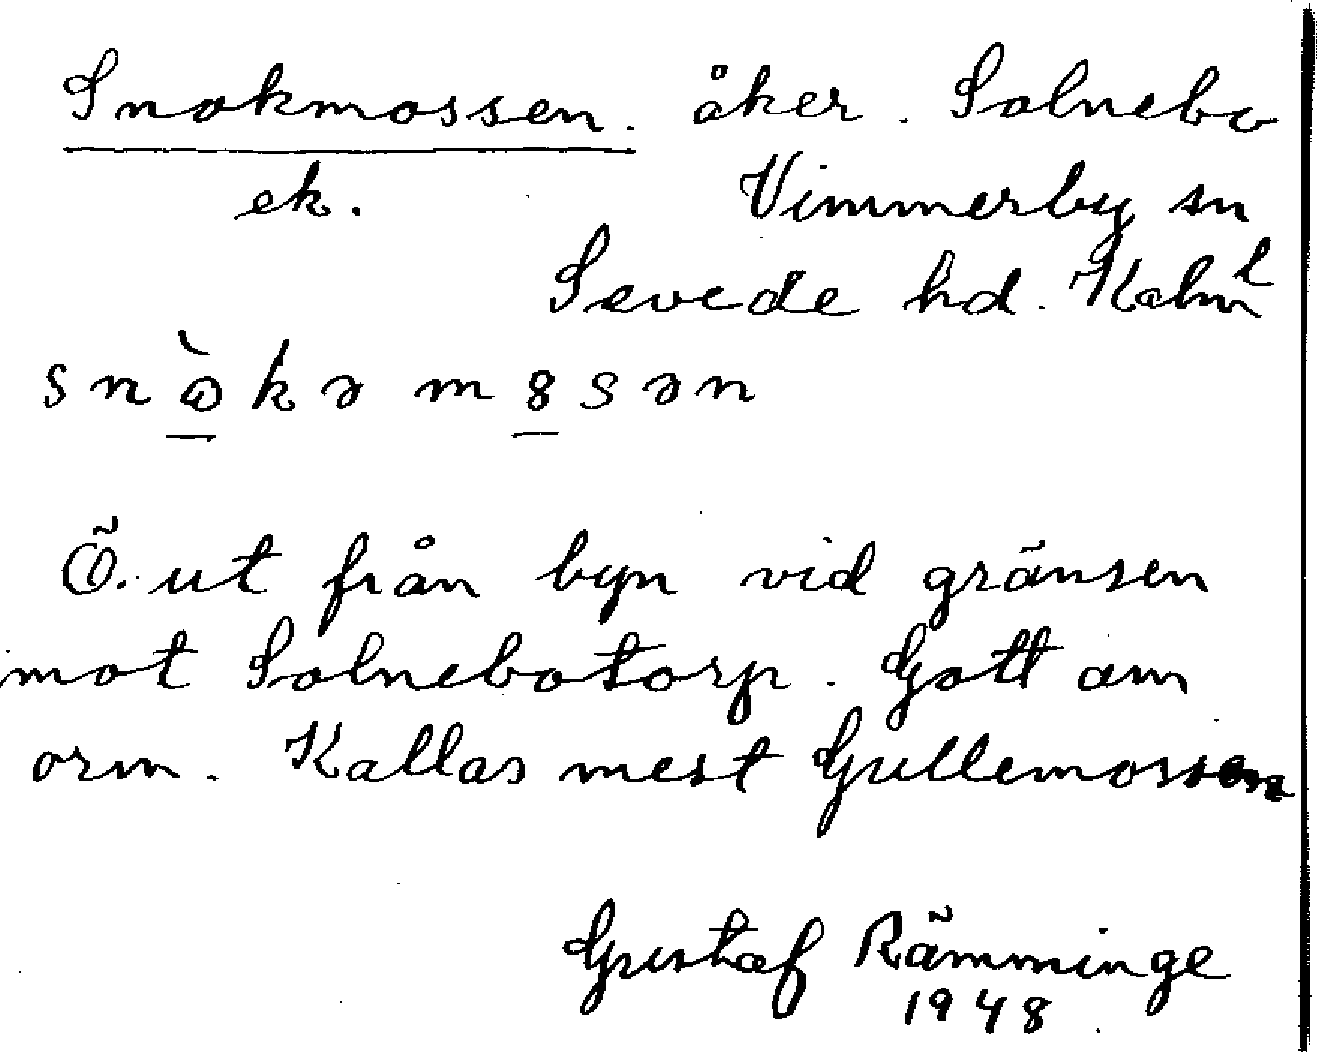 Snokmossen. åker. Solnebo
ek. Vimmerby sn
Sevede hd. Kalm l
snòkə m8sən
Ö. ut från byn vid gränsen
mot Solnebotorp. Gott om
orm. Kallas mest Gullemossen
Gustaf Rämminge
1948.